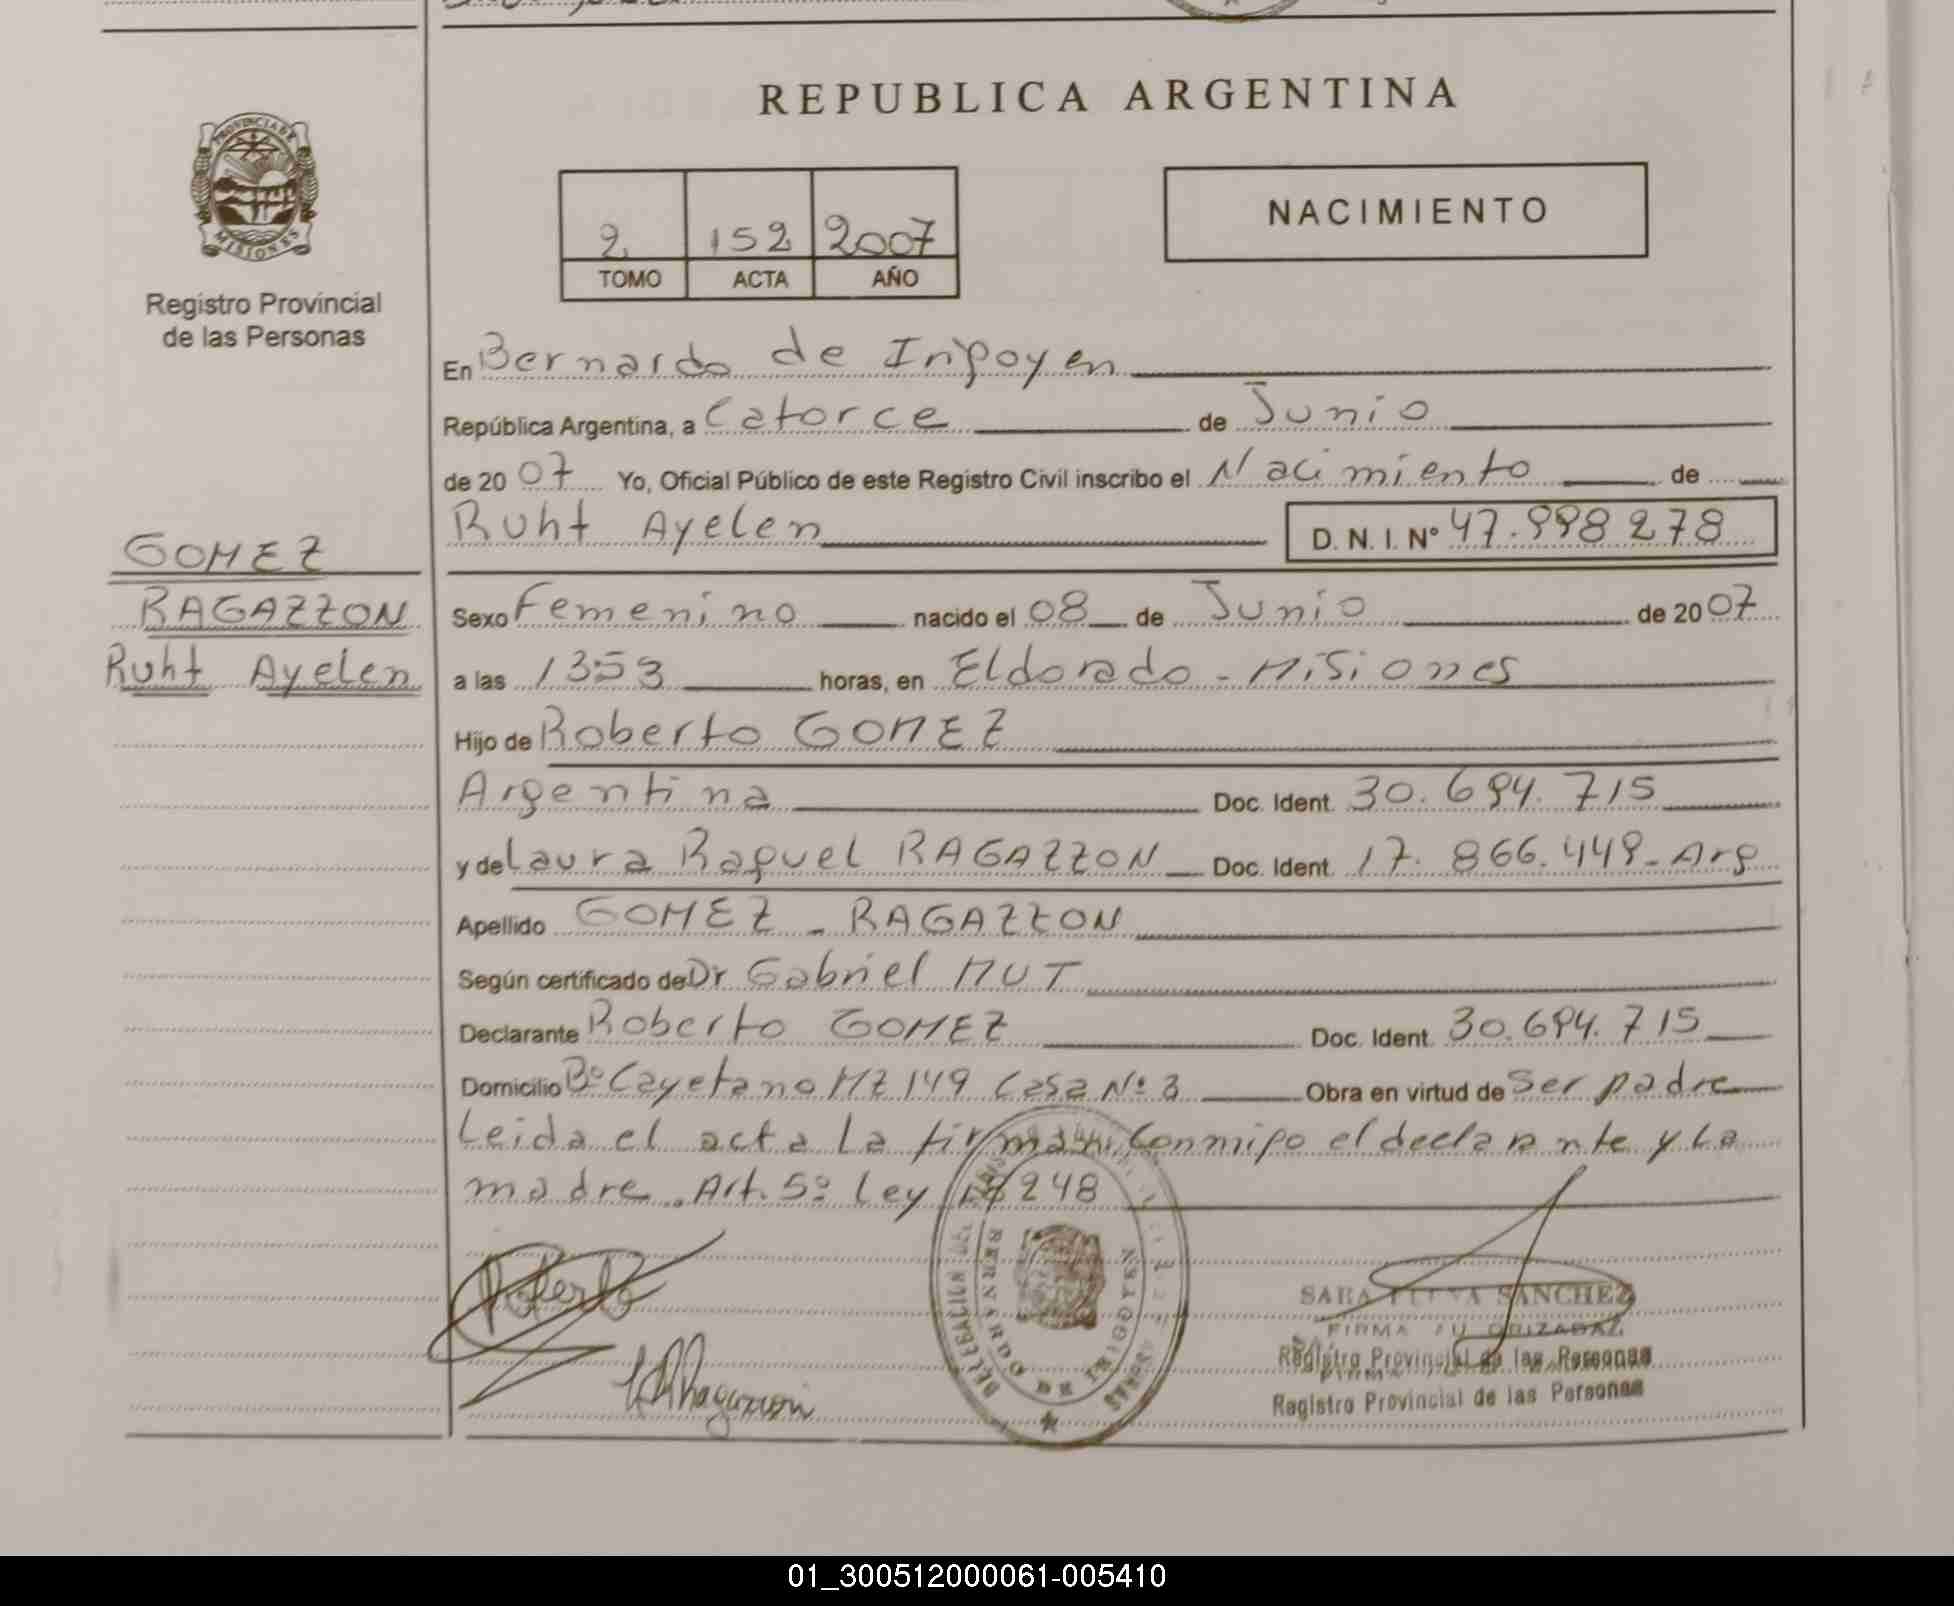 REPUBLICA ARGENTINA
PROVINCIA DE
MISIONES
Registro Provincial
de las Personas
2 152 2007
TOMO ACTA AÑO
NACIMIENTO
En Bernardo de Irigoyen
República Argentina, a Catorce de Junio
de 2007 Yo, Oficial Público de este Registro Civil inscribo el Nacimiento de
Ruht Ayelen D. N. I. Nº 47.998278
GOMEZ
RAGAZZON
Ruht Ayelen
Sexo Femenino nacido el 08 de Junio de 2007
a las 1353 horas, en Eldorado - Misiones
Hijo de Roberto GOMEZ
Argentina Doc. Ident. 30.694.715
y de Laura Raquel RAGAZZON Doc. Ident. 17.866.449 - Arg
Apellido GOMEZ - RAGAZZON
Según certificado de Dr Gabriel MUT
Declarante Roberto GOMEZ Doc. Ident. 30.694.715
Domicilio Bº Cayetano MZ 149 Casa Nº 3 Obra en virtud de Ser padre
Leida el acta la firman Conmigo el declarante y la
madre. Art. 5º Ley 18248
Roberto
BERNARDO DE IRIGOYEN
SARA SANCHEZ
FIRMA AUTORIZADA
Registro Provincial de las Personas
Registro Provincial de las Personas
01_300512000061-005410